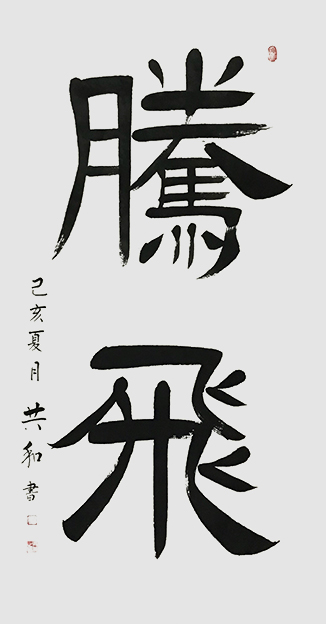 騰
飛
己亥夏月共和書